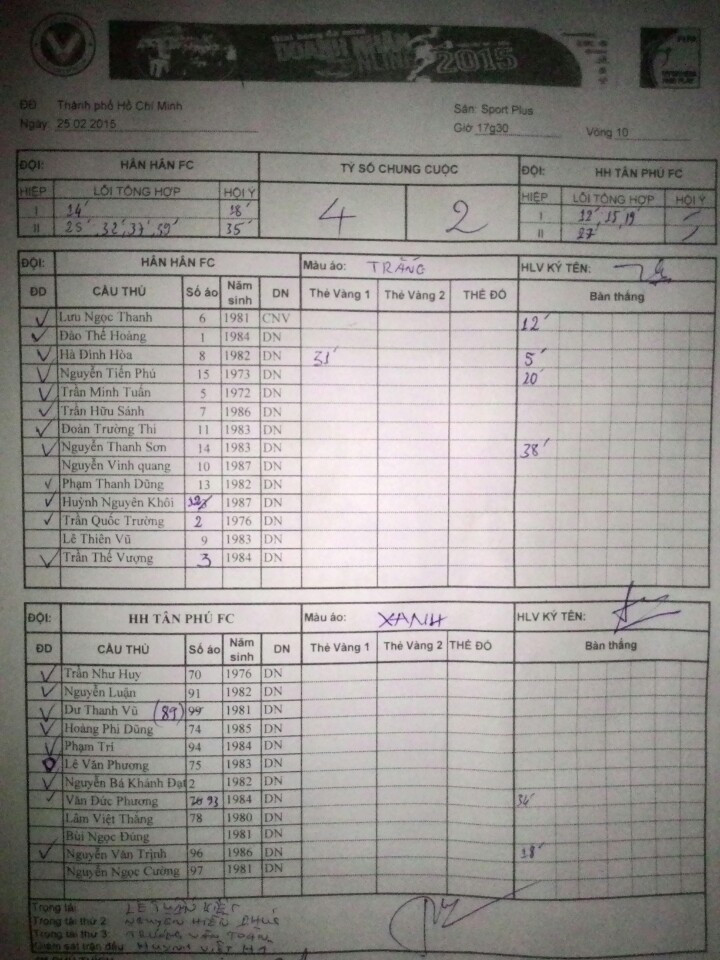 DOANH NHÂN
2015
ĐĐ: Thành phố Hồ Chí Minh
Sân: Sport Plus
Ngày: 25.02.2015
Giờ 17g30
Vòng 10
ĐỘI: HÂN HÂN FC TỶ SỐ CHUNG CUỘC ĐỘI: HH TÂN PHÚ FC
HIỆP LỖI TỔNG HỢP HỘI Ý 4 2 HIỆP LỖI TỔNG HỢP HỘI Ý
I 14' 18' I 12', 15, 19'
II 25', 32', 37', 39' 35' II 27'
ĐỘI: HÂN HÂN FC Màu áo: TRẮNG HLV KÝ TÊN:
ĐD CẦU THỦ Số áo Năm sinh DN Thẻ Vàng 1 Thẻ Vàng 2 THẺ ĐỎ Bàn thắng
Lưu Ngọc Thanh 6 1981 CNV 12'
Đào Thế Hoàng 1 1984 DN
Hà Đình Hòa 8 1982 DN 31' 5'
Nguyễn Tiến Phú 15 1973 DN 20'
Trần Minh Tuấn 5 1972 DN
Trần Hữu Sánh 7 1986 DN
Đoàn Trường Thi 11 1983 DN
Nguyễn Thanh Sơn 14 1983 DN 38'
Nguyễn Vinh quang 10 1987 DN
Phạm Thanh Dũng 13 1982 DN
Huỳnh Nguyên Khôi 1987 DN
Trần Quốc Trường 2 1976 DN
Lê Thiên Vũ 9 1983 DN
Trần Thế Vượng 3 1984 DN
ĐỘI: HH TÂN PHÚ FC Màu áo: XANH HLV KÝ TÊN:
ĐD CẦU THỦ Số áo Năm sinh DN Thẻ Vàng 1 Thẻ Vàng 2 THẺ ĐỎ Bàn thắng
Trần Như Huy 70 1976 DN
Nguyễn Luận 91 1982 DN
Dư Thanh Vũ (89) 99 1981 DN
Hoàng Phi Dũng 74 1985 DN
Phạm Trí 94 1984 DN
Lê Văn Phương 75 1983 DN
Nguyễn Bá Khánh Đạt 2 1982 DN
Văn Đức Phương 93 1984 DN 34'
Lâm Việt Thắng 78 1980 DN
Bùi Ngọc Dũng 1981 DN
Nguyễn Văn Trịnh 96 1986 DN 18'
Nguyễn Ngọc Cường 97 1981 DN
Trọng tài: LE TUAN KIỆT
Trọng tài thứ 2: NGUYEN HIEN PHUC
Trọng tài thứ 3: TRƯƠNG VĂN TOẢN
Giám sát trận đấu: HUYNH VIET HA